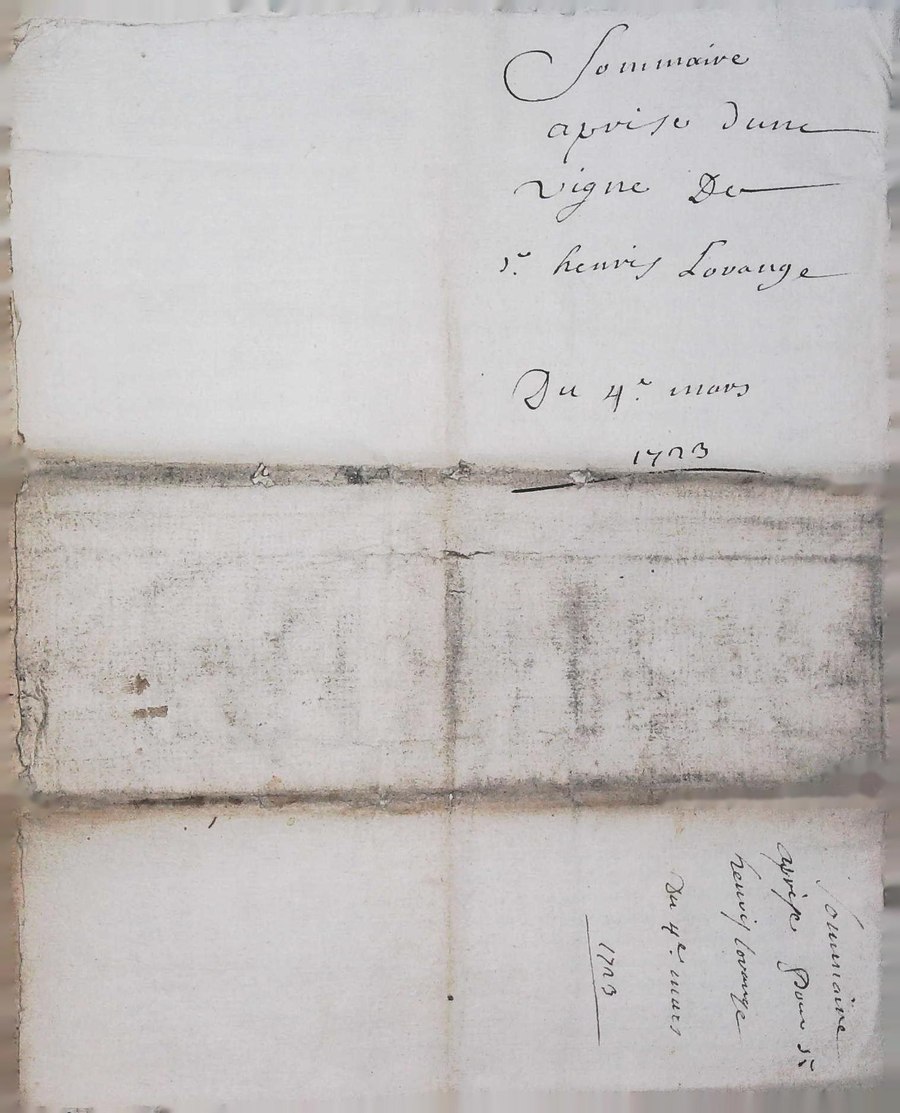 Sommaire
aprise dune
vigne De
Sr. henris Lovange
Du 4e. mars
1723
Sommaire
aprise pour Sr
henris lovange
Du 4e. mars
1723